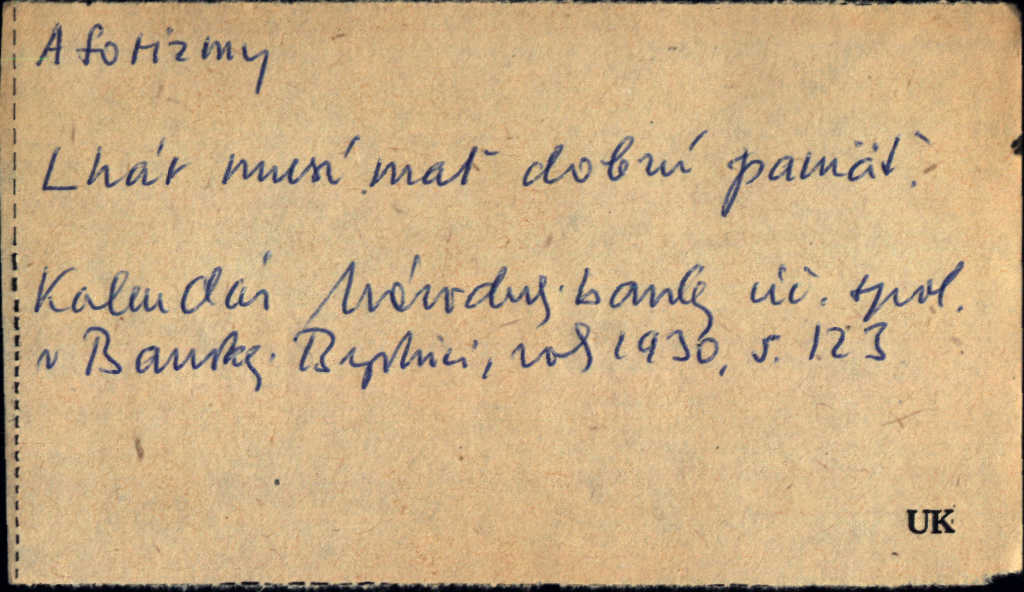 Aforizmy
Lhár musí mať dobrú pamäť.
Kalendár Národnej banky úč. spol.
v Banskej Bystrici, rok 1930, s. 123
UK